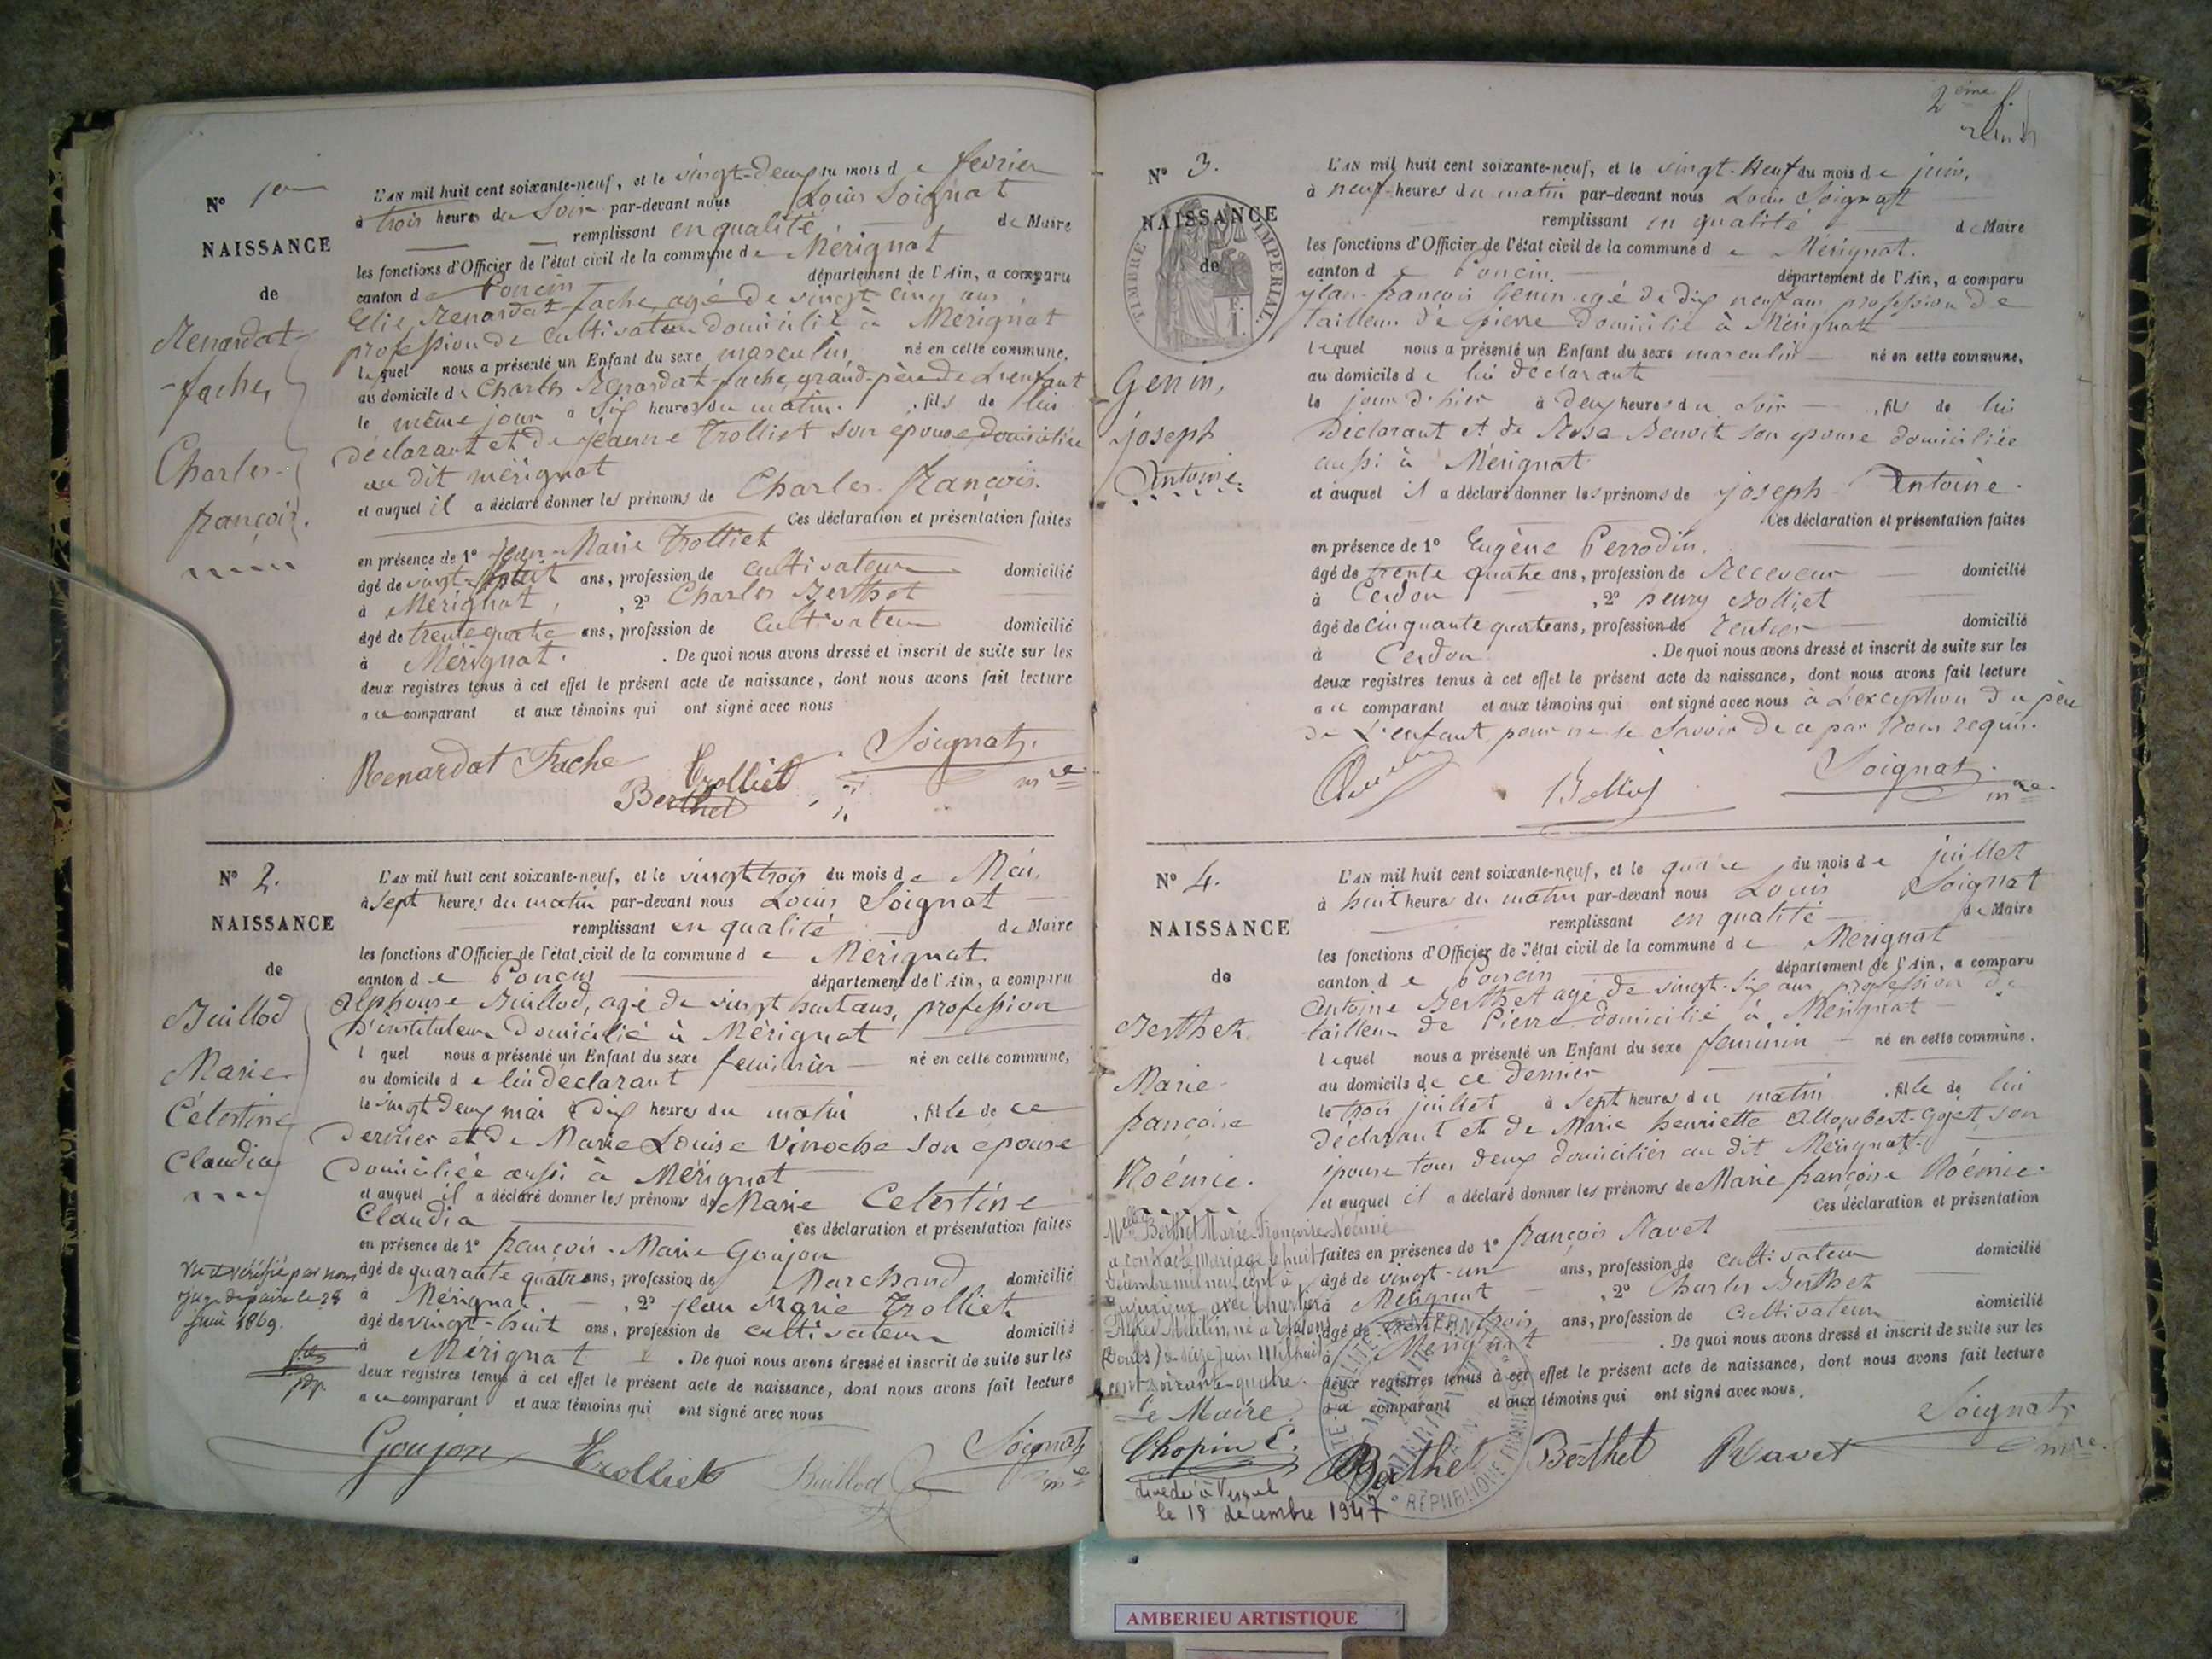 N° 1er
NAISSANCE
de
Renardat-
-fache,
Charles-
françois.
L'AN mil huit cent soixante-neuf, et le vingt-deux du mois de fevrier
à trois heures du Soir par-devant nous Louis Soignat
remplissant en qualité de Maire
les fonctions d'Officier de l'état civil de la commune de Mérignat
canton de Poncin département de l'Ain, a comparu
Elie Renardat-fache, agé de vingt-cinq ans,
profession de Cultivateur domicilié à Mérignat
lequel nous a présenté un Enfant du sexe masculin né en cette commune,
au domicile de Charles Renardat-fache, grand-père de L'enfant
le même jour à six heures du matin. , fils de lui
déclarant et de jeanne Trolliet son epouse domiciliée
au dit mérignat
et auquel il a déclaré donner les prénoms de Charles-françois.
Ces déclaration et présentation faites
en présence de 1° jean-Marie Trolliet
âgé de vingt-huit ans, profession de cultivateur domicilié
à Mérignat, , 2° Charles Berthet
âgé de trente quatre ans, profession de Cultivateur domicilié
à Mérignat. . De quoi nous avons dressé et inscrit de suite sur les
deux registres tenus à cet effet le présent acte de naissance, dont nous avons fait lecture
au comparant et aux témoins qui ont signé avec nous
Renardat Fache Trolliet Soignat,
Berthet mre
N° 2.
NAISSANCE
de
Buillod
Marie
Célestine
Claudia
Vu et vérifié par nous
juge de paix le 28
juin 1869.
L'AN mil huit cent soixante-neuf, et le vingt trois du mois de Mai,
à sept heures du matin par-devant nous Louis Soignat
remplissant en qualité de Maire
les fonctions d'Officier de l'état civil de la commune de Mérignat.
canton de Poncin département de l'Ain, a comparu
Alphonse Buillod, agé de vingt huit ans, profession
D'instituteur Domicilié à Mérignat
l quel nous a présenté un Enfant du sexe feminin né en cette commune,
au domicile de lui déclarant
le vingt deux mai à dix heures du matin , fille de ce
dernier et de Marie Louise Vinoche son epouse
Domiciliée aussi à Mérignat
et auquel il a déclaré donner les prénoms de Marie Celestine
Claudia Ces déclaration et présentation faites
en présence de 1° françois-Marie Goujon
âgé de quarante quatre ans, profession de Marchand domicilié
à Mérignat. , 2° jean Marie Trolliet
âgé de vingt-huit ans, profession de cultivateur domicilié
à Mérignat . De quoi nous avons dressé et inscrit de suite sur les
deux registres tenus à cet effet le présent acte de naissance, dont nous avons fait lecture
au comparant et aux témoins qui ont signé avec nous
Goujon Trolliet Buillod Soignat
mre
2ème f.
N° 3.
NAISSANCE
de
TIMBRE IMPERIAL
Genin,
joseph
Antoine.
L'AN mil huit cent soixante-neuf, et le vingt-neuf du mois de juin,
à neuf heures du matin par-devant nous Louis Soignat
remplissant en qualité de Maire
les fonctions d'Officier de l'état civil de la commune de Mérignat.
canton de Poncin. département de l'Ain, a comparu
jean-françois Genin agé de dix neuf ans profession de
tailleur de pierre Domicilié à Mérignat
lequel nous a présenté un Enfant du sexe masculin né en cette commune,
au domicile de lui déclarant
le jour d'hier à deux heures du soir , fils de lui
déclarant et de Rosa Benoit son epouse domiciliée
aussi à Mérignat
et auquel il a déclaré donner les prénoms de joseph-Antoine.
Ces déclaration et présentation faites
en présence de 1° Eugène Perrodin.
âgé de trente quatre ans, profession de Receveur domicilié
à Cerdon , 2° henry Bolliet
âgé de cinquante quatre ans, profession de rentier domicilié
à Cerdon . De quoi nous avons dressé et inscrit de suite sur les
deux registres tenus à cet effet le présent acte de naissance, dont nous avons fait lecture
au comparant et aux témoins qui ont signé avec nous à L'exception du père
de L'enfant pour ne le Savoir de ce par Nous requis.
Soignat,
mre
N° 4.
NAISSANCE
de
Berthet.
Marie-
françoise
Noémie.
L'AN mil huit cent soixante-neuf, et le quatre du mois de juillet
à huit heures du matin par-devant nous Louis Soignat
remplissant en qualité de Maire
les fonctions d'Officier de l'état civil de la commune de Mérignat
canton de Poncin département de l'Ain, a comparu
Antoine Berthet agé de vingt-six ans profession de
tailleur de Pierre domicilié à Mérignat
lequel nous a présenté un Enfant du sexe feminin né en cette commune.
au domicile de ce dernier
le trois juillet à sept heures du matin , fille de lui
déclarant et de Marie henriette Allombert-Goget, son
épouse tous deux domiciliés au dit Mérignat.
et auquel il a déclaré donner les prénoms de Marie françoise Noémie.
Ces déclaration et présentation
faites en présence de 1° françois Ravet
âgé de vingt-un ans, profession de cultivateur domicilié
à Mérignat , 2° Charles Berthet
âgé de trente trois ans, profession de Cultivateur domicilié
à Mérignat . De quoi nous avons dressé et inscrit de suite sur les
deux registres tenus à cet effet le présent acte de naissance, dont nous avons fait lecture
au comparant et aux témoins qui ont signé avec nous.
Berthet Berthet Ravet Soignat,
mre.
Melle Berthet Marie-Françoise-Noémie
a contracté mariage le huit
Décembre mil neuf cent à
avec
né à
Doubs) le seize juin Mil huit
cent soixante-quatre.
Le Maire.
Chopin E.
décédée à Vesoul
le 18 décembre 1947
RÉPUBLIQUE FRANÇAISE
AMBERIEU ARTISTIQUE